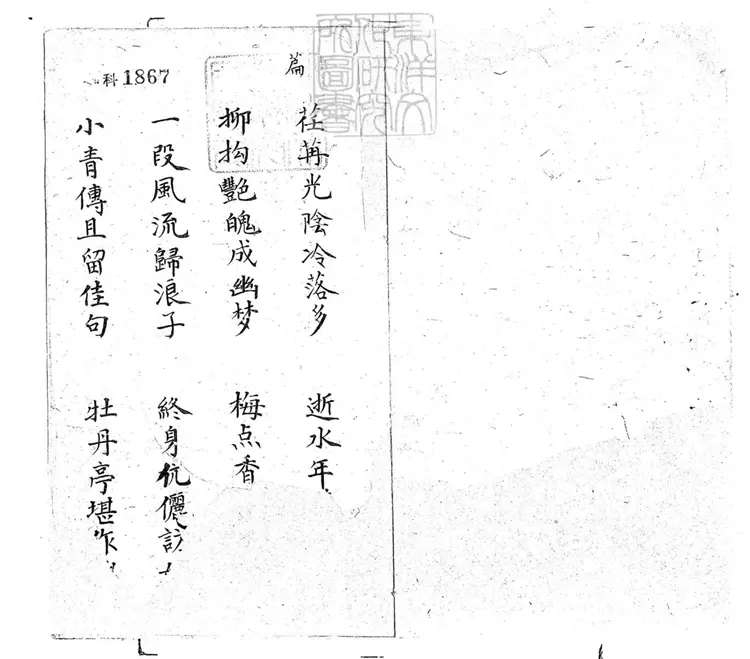 東洋文化研究所圖書
篇
荏苒光陰冷落多 逝水年
柳拘艷魄成幽梦 梅点香
科1867
一段風流歸浪子 終身伉儷
小青傳且留佳句 牡丹亭堪作